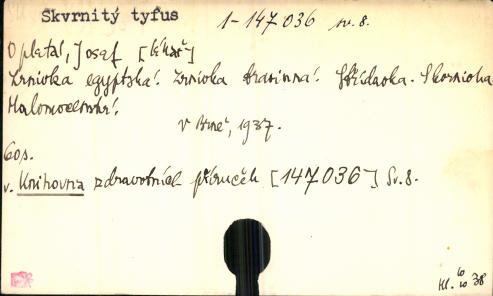 Skvrnitý tyfus
1-147036 sv. 8.
Opletal, Josef [lékař]
Zrnivka egyptská. Zrnivka travinná. Střídavka. Skvrnivka
Malomocenství.
V Brně, 1937.
60 s.
v. Knihovna zdravotních příruček [147036] Sv. 8.
Kl. 10/10 38